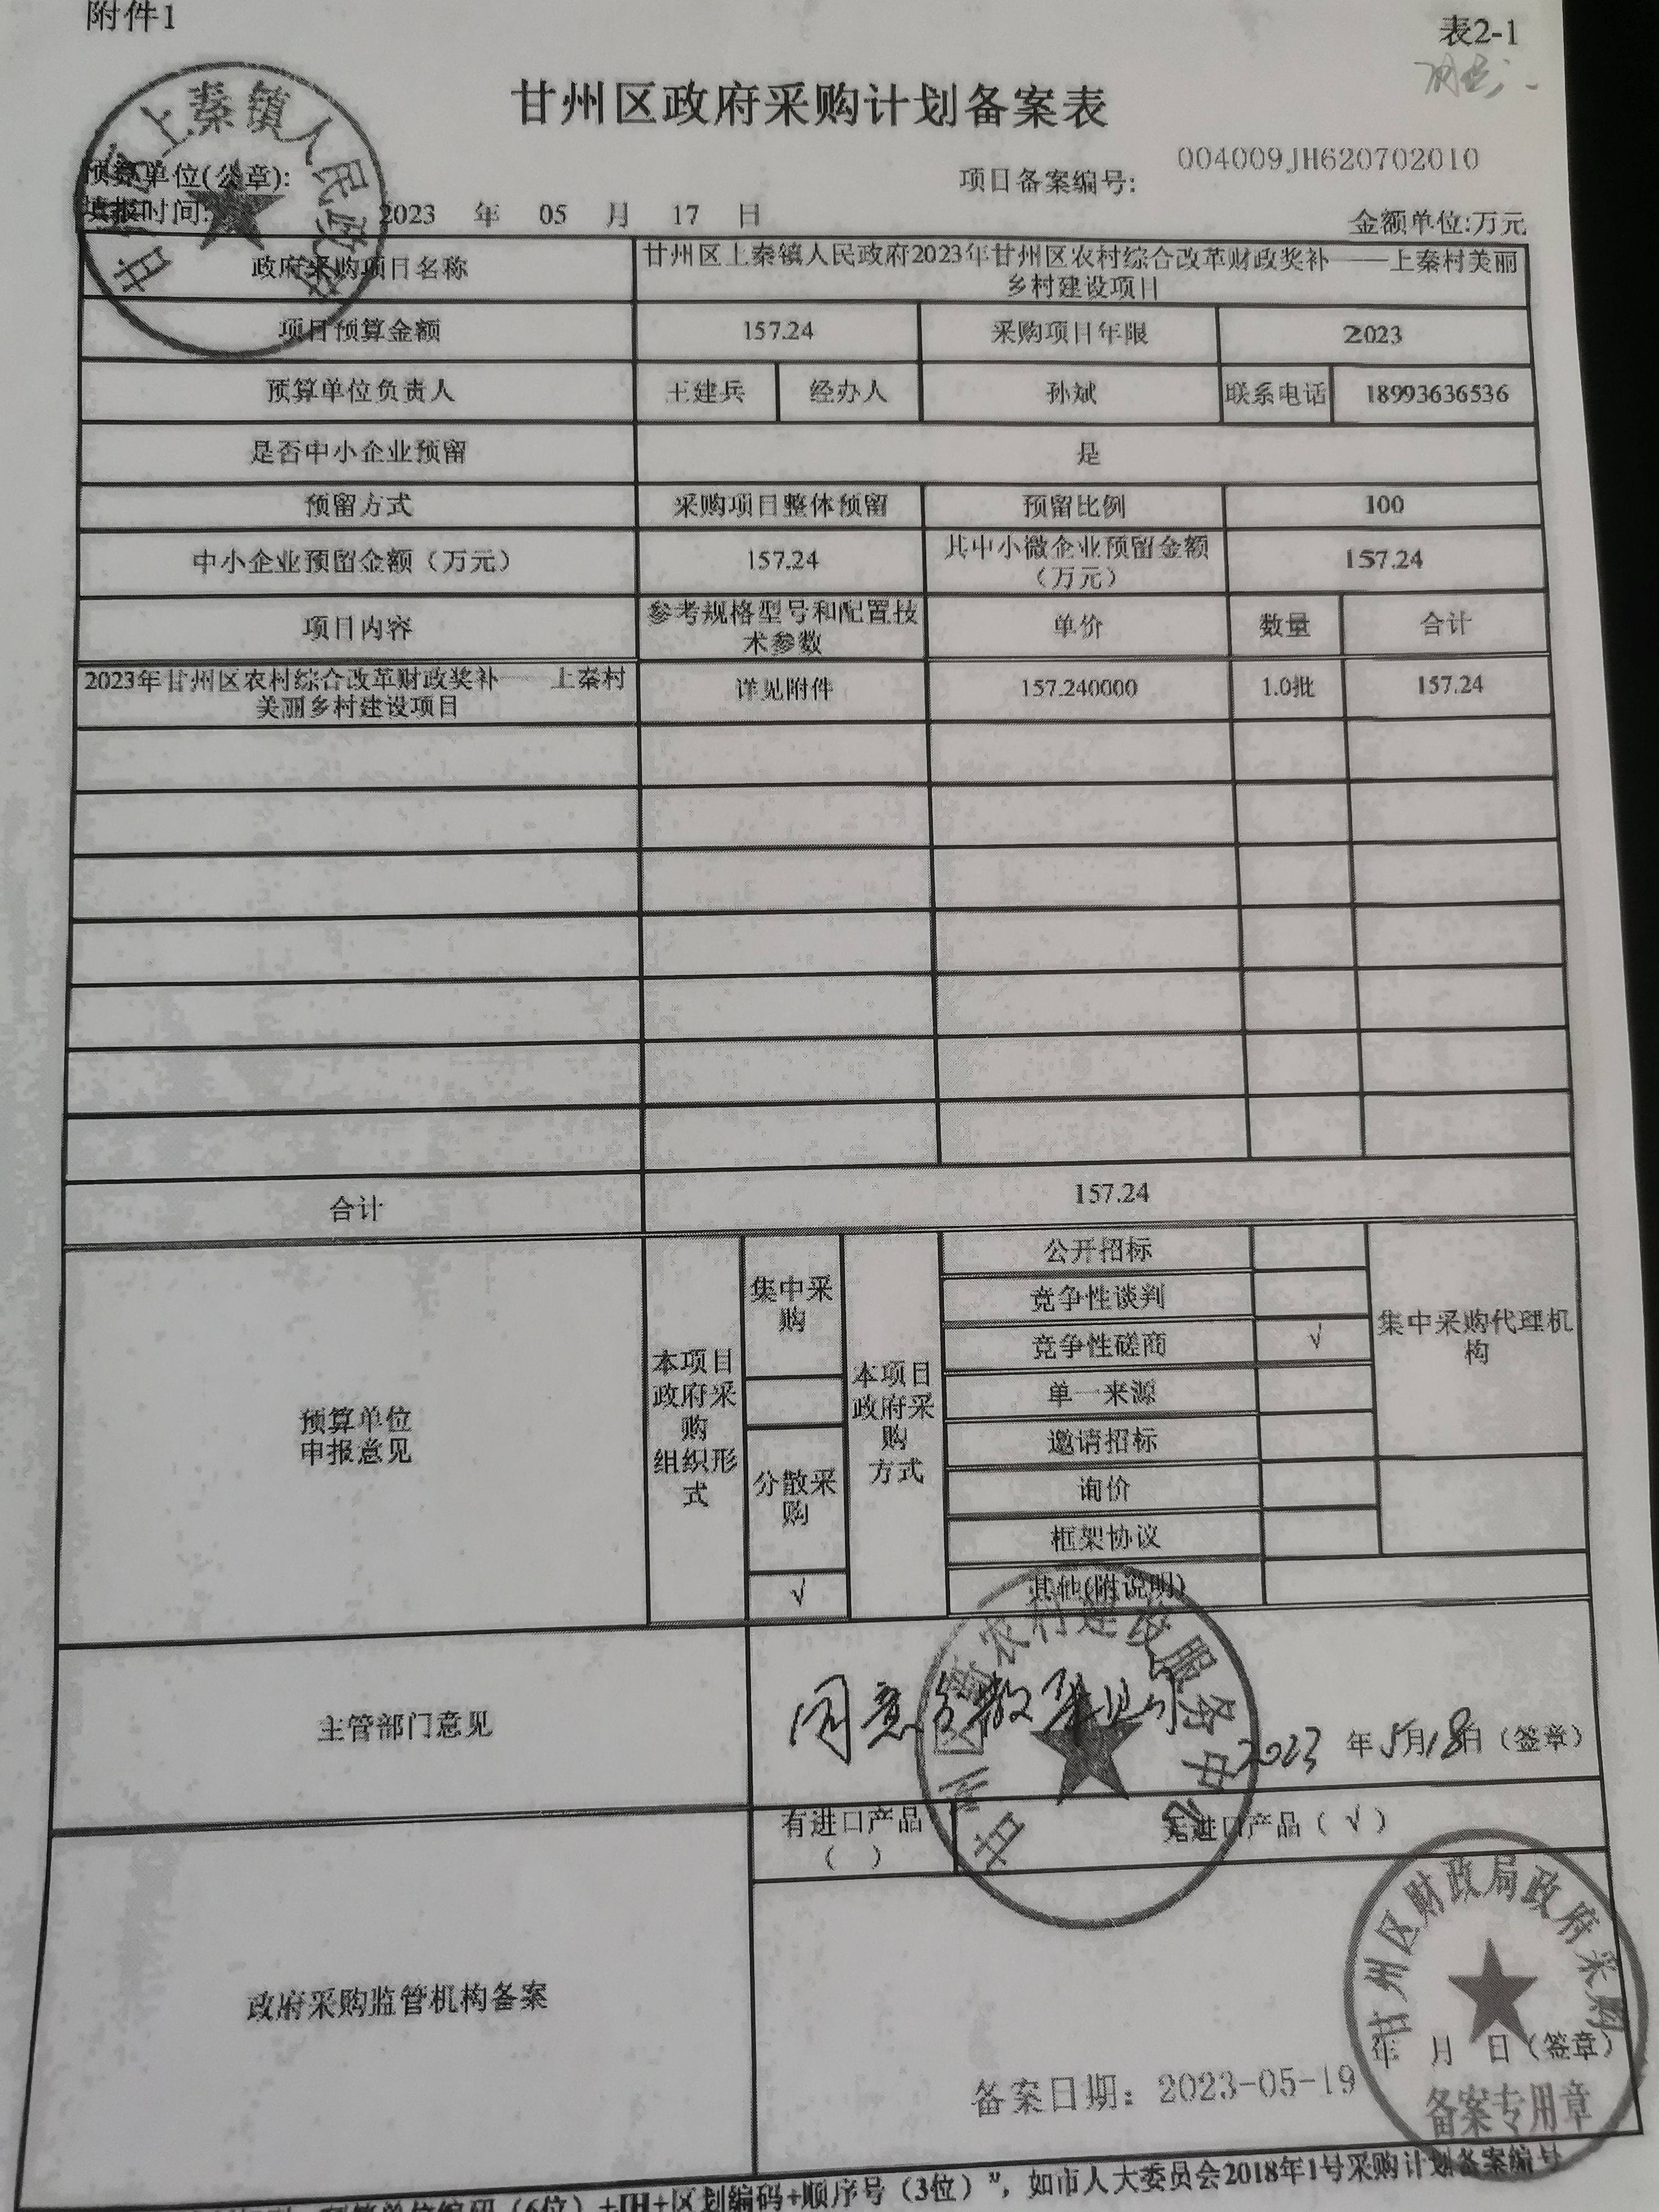 附件1
表2-1
甘州区政府采购计划备案表
甘州区上秦镇人民政府
预算单位(公章):
项目备案编号:
004009JH620702010
填报时间:
2023 年 05 月 17 日
金额单位:万元
政府采购项目名称
甘州区上秦镇人民政府2023年甘州区农村综合改革财政奖补——上秦村美丽
乡村建设项目
项目预算金额 157.24 采购项目年限 2023
预算单位负责人 王建兵 经办人 孙斌 联系电话 18993636536
是否中小企业预留 是
预留方式 采购项目整体预留 预留比例 100
中小企业预留金额（万元） 157.24
其中小微企业预留金额
（万元）
157.24
项目内容
参考规格型号和配置技
术参数
单价 数量 合计
2023年甘州区农村综合改革财政奖补——上秦村
美丽乡村建设项目
详见附件 157.240000 1.0批 157.24
合计 157.24
预算单位
申报意见
本项目
政府采
购
组织形
式
集中采
购
分散采
购
√
本项目
政府采
购
方式
公开招标
竞争性谈判
竞争性磋商 √
单一来源
邀请招标
询价
框架协议
其他(附说明)
集中采购代理机
构
主管部门意见
同意分散采购
2023 年5月18日（签章）
甘州区 农村建设服务中心
有进口产品
（ ）
无进口产品（ √ ）
政府采购监管机构备案
甘州区财政局政府采购
年 月 日（签章）
备案日期: 2023-05-19
备案专用章
（6位）+JH+区划编码+顺序号（3位）”，如市人大委员会2018年1号采购计划备案编号